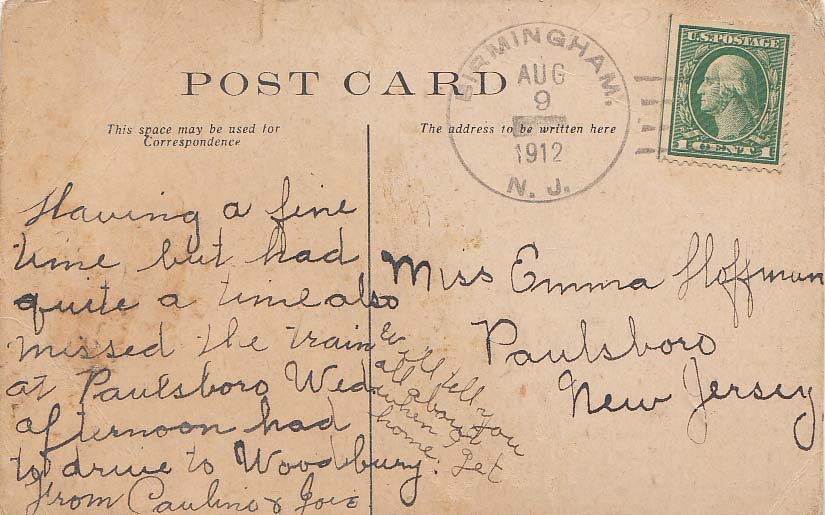 POST CARD
This space may be used for
Correspondence
The address to be written here
BIRMINGHAM.
AUG
9
1912
N. J.
U.S. POSTAGE
1 CENT 1
Having a fine
time but had
quite a time also
missed the train
at Paulsboro Wed.
afternoon had
to drive to Woodbury.
From Pauline & Joie
will tell you
all about
when I get
home.
Miss Emma Hoffman
Paulsboro
New Jersey